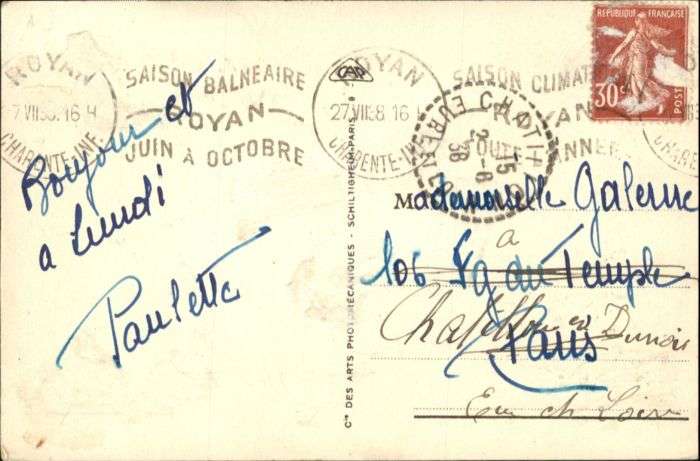 ROYAN
27 VII 38. 16 H
CHARENTE-INF
SAISON BALNEAIRE
ROYAN
JUIN À OCTOBRE
ROYAN
27 VII 38 16 H
CHARENTE-INF
SAISON CLIMAT
ROYAN
TOUTE L'ANNEE
REPUBLIQUE FRANÇAISE
30c
POSTES
CAP
EURE-ET-LOIR
38
Bonjour et
a lundi
Paulette
Cie DES ARTS PHOTOMÉCANIQUES - SCHILTIGHEIM-PARIS
Mademoiselle Galerne
à
106 Fg du Temple
Chateaudun en Dunois
Paris
Eure et Loir